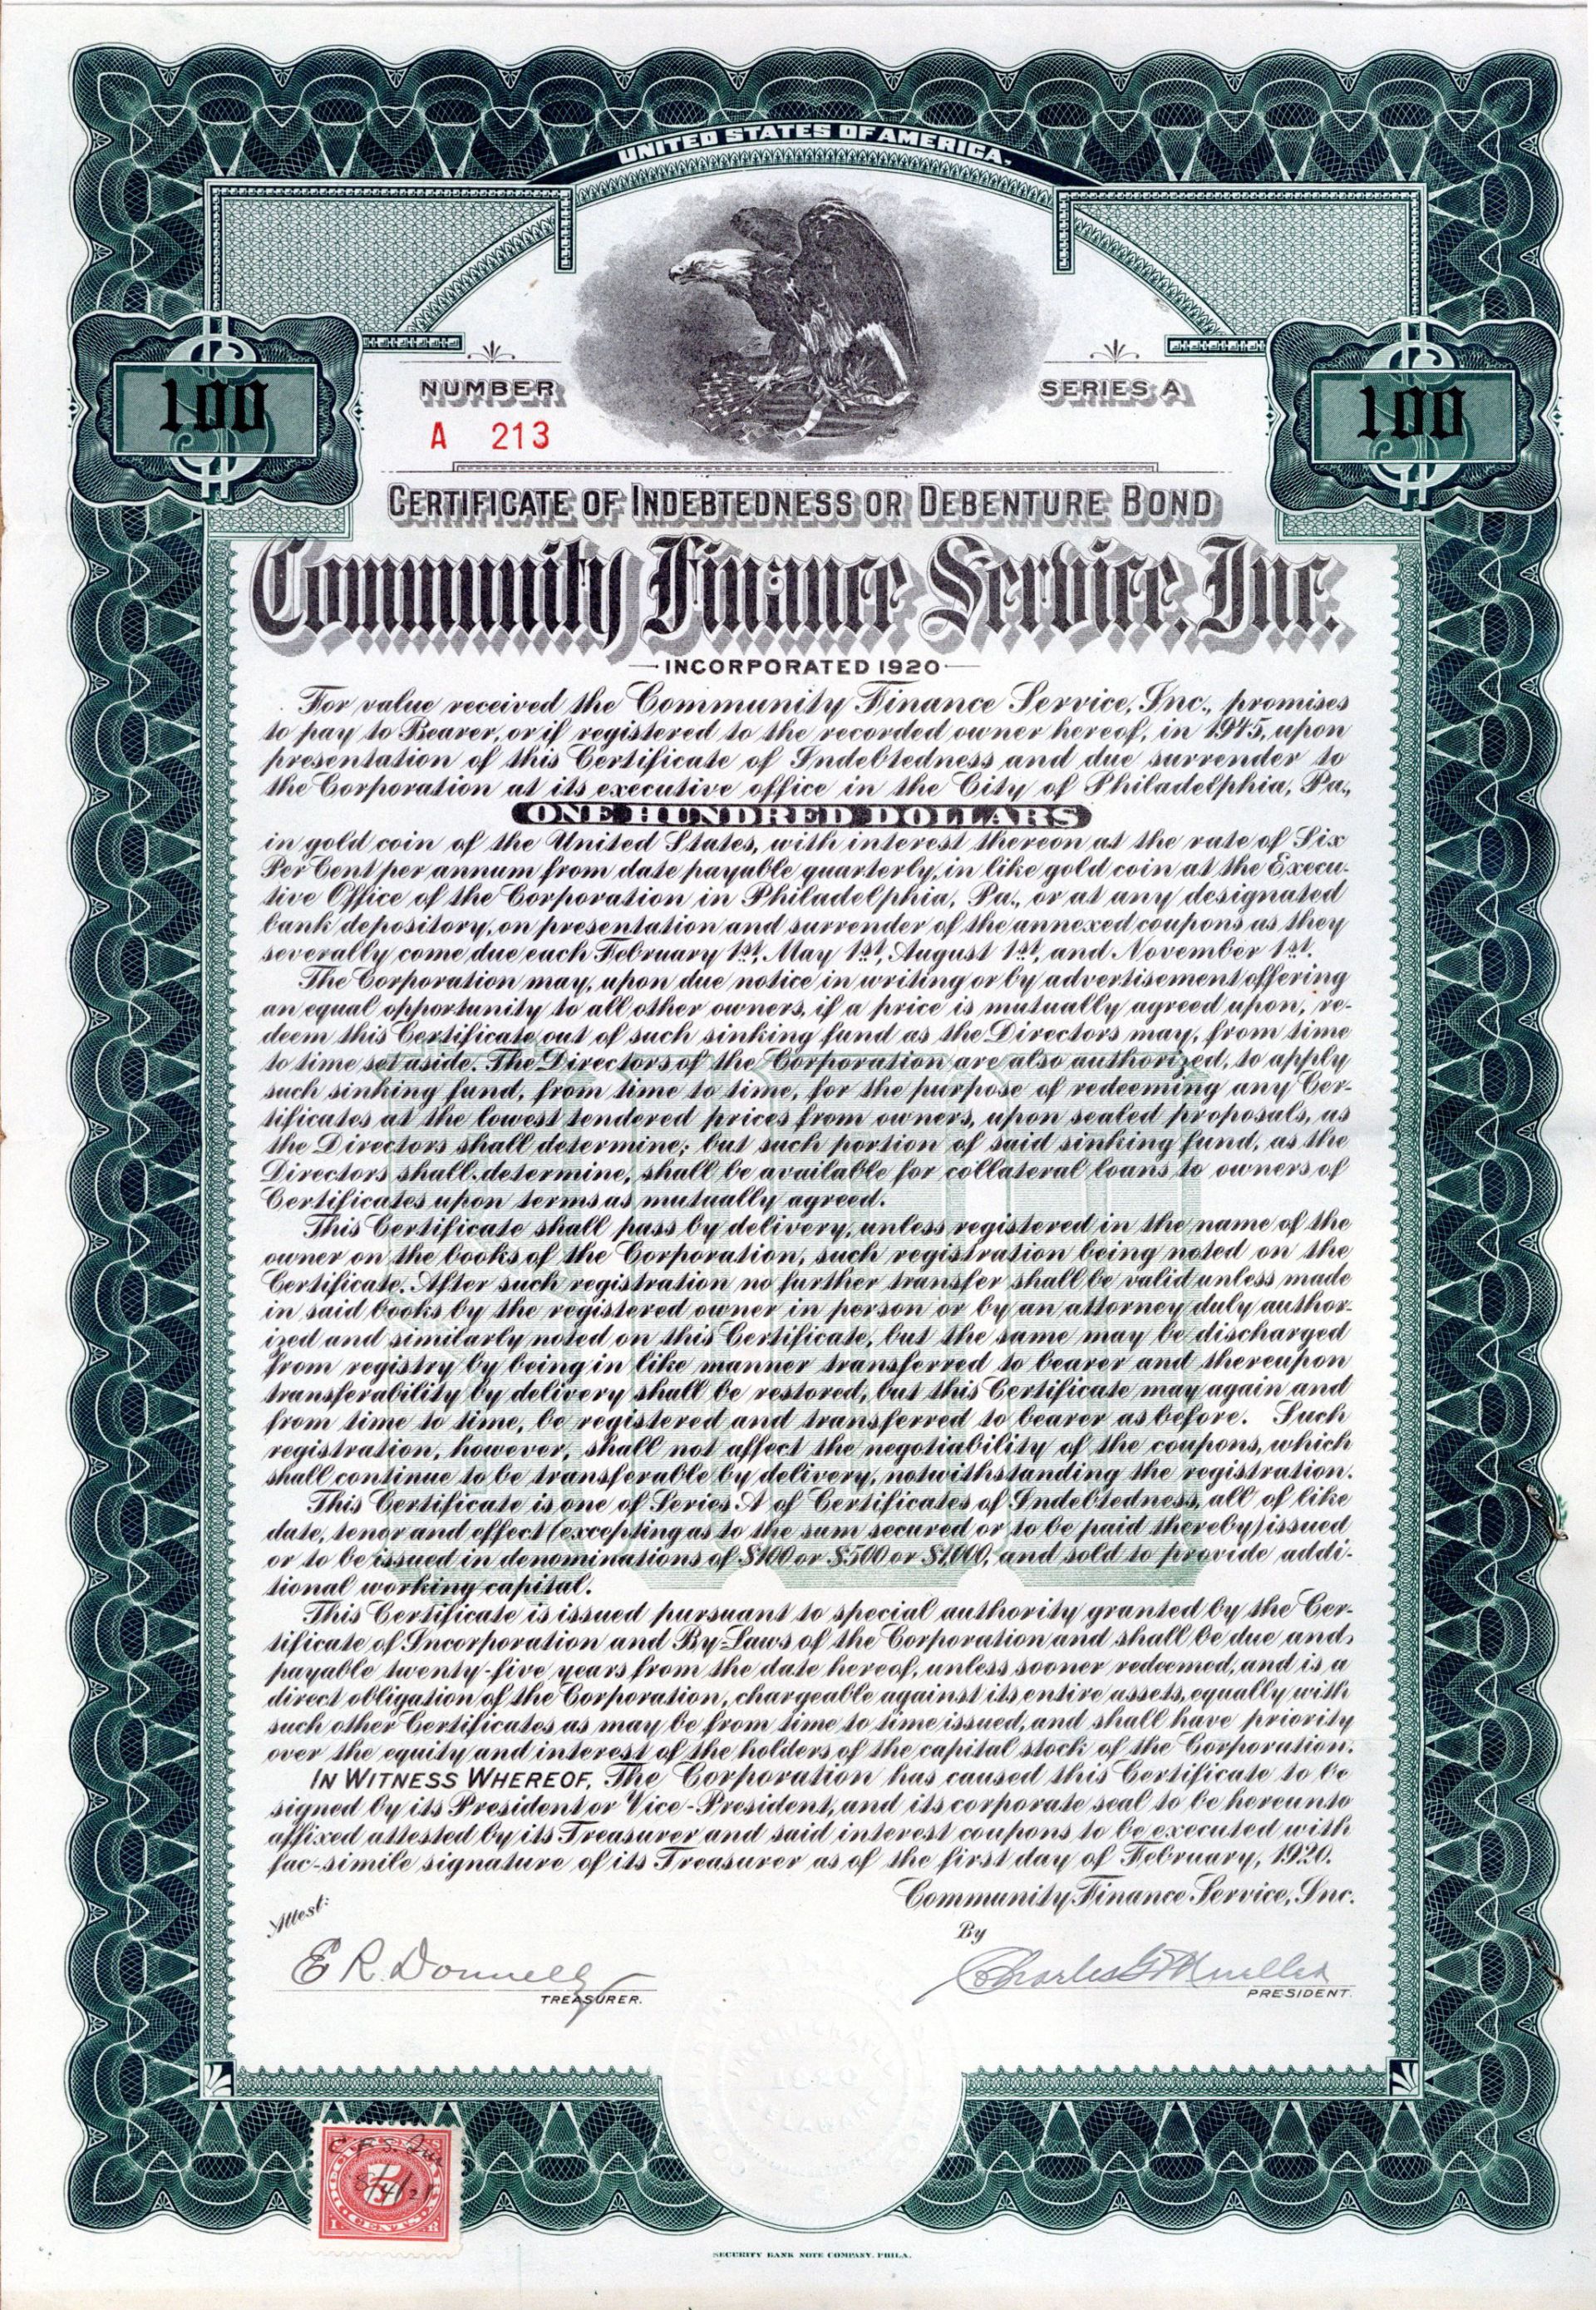 UNITED STATES OF AMERICA.
100
100
NUMBER
SERIES A
A 213
CERTIFICATE OF INDEBTEDNESS OR DEBENTURE BOND
Community Finance Service, Inc.
INCORPORATED 1920
For value received the Community Finance Service, Inc., promises
to pay to Bearer, or if registered to the recorded owner hereof, in 1945, upon
presentation of this Certificate of Indebtedness and due surrender to
the Corporation at its executive office in the City of Philadelphia, Pa.,
ONE HUNDRED DOLLARS
in gold coin of the United States, with interest thereon at the rate of Six
Per Cent per annum from date payable quarterly, in like gold coin at the Execu-
tive Office of the Corporation in Philadelphia, Pa., or at any designated
bank depository, on presentation and surrender of the annexed coupons as they
severally come due each February 1st, May 1st, August 1st, and November 1st.
The Corporation may, upon due notice in writing or by advertisement offering
an equal opportunity to all other owners, if a price is mutually agreed upon, re-
deem this Certificate out of such sinking fund as the Directors may, from time
to time set aside. The Directors of the Corporation are also authorized, to apply
such sinking fund, from time to time, for the purpose of redeeming any Cer-
tificates at the lowest tendered prices from owners, upon sealed proposals, as
the Directors shall determine; but such portion of said sinking fund, as the
Directors shall determine, shall be available for collateral loans to owners of
Certificates upon terms as mutually agreed.
This Certificate shall pass by delivery, unless registered in the name of the
owner on the books of the Corporation, such registration being noted on the
Certificate. After such registration no further transfer shall be valid unless made
in said books by the registered owner in person or by an attorney duly author-
ized and similarly noted on this Certificate, but the same may be discharged
from registry by being in like manner transferred to bearer and thereupon
transferability by delivery shall be restored, but this Certificate may again and
from time to time, be registered and transferred to bearer as before. Such
registration, however, shall not affect the negotiability of the coupons, which
shall continue to be transferable by delivery, notwithstanding the registration.
This Certificate is one of Series A of Certificates of Indebtedness, all of like
date, tenor and effect (excepting as to the sum secured or to be paid thereby) issued
or to be issued in denominations of $100 or $500 or $1,000, and sold to provide addi-
tional working capital.
This Certificate is issued pursuant to special authority granted by the Cer-
tificate of Incorporation and By-Laws of the Corporation and shall be due and
payable twenty-five years from the date hereof, unless sooner redeemed, and is a
direct obligation of the Corporation, chargeable against its entire assets, equally with
such other Certificates as may be from time to time issued, and shall have priority
over the equity and interest of the holders of the capital stock of the Corporation.
IN WITNESS WHEREOF, The Corporation has caused this Certificate to be
signed by its President or Vice-President, and its corporate seal to be hereunto
affixed attested by its Treasurer and said interest coupons to be executed with
fac-simile signature of its Treasurer as of the first day of February, 1920.
Community Finance Service, Inc.
Attest:
By
E R Donnelly
TREASURER.
Charles G Mueller
PRESIDENT.
C.F.S. Inc
8/4/21
5
CENTS
SECURITY BANK NOTE COMPANY. PHILA.